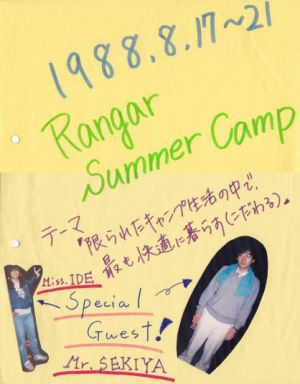 1988.8.17~21
Rangar
Summer Camp
テーマ
「限られたキャンプ生活の中で、
最も快適に暮らす(こだわる)。
Miss.IDE
Special
Guest!
Mr.SEKIYA